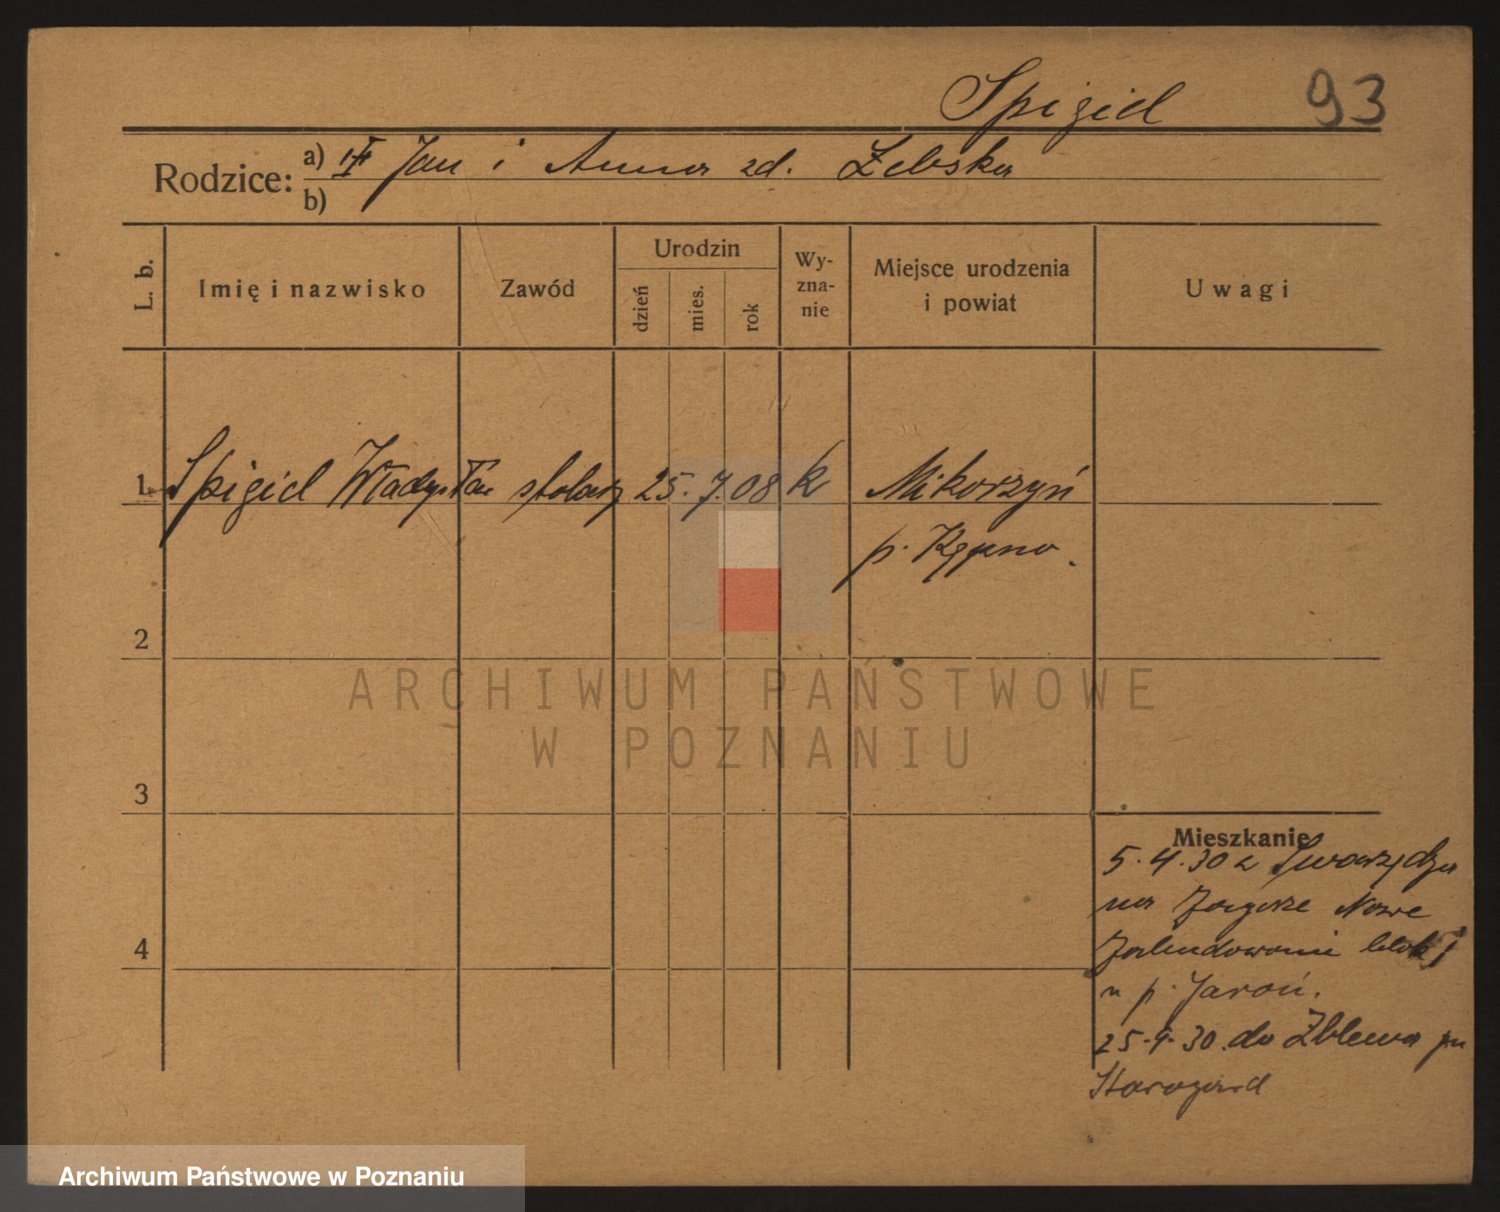 Spigiel 93
Rodzice: a) Jan i Anna zd. Żebska
b)
L. b. Imię i nazwisko Zawód Urodzin dzień mies. rok Wyznanie Miejsce urodzenia i powiat Uwagi
1 Spigiel Władysław stolarz 25. 7. 08 k Mikorzyń
p. Kępno.
2
3
4
Mieszkanie
5.4.30 z Swarzędza
na Zagórze Nowe
Zabudowanie blok I
u p. Jaroń.
25.9.30. do Zblewa pw
Starogard
ARCHIWUM PAŃSTWOWE
W POZNANIU
Archiwum Państwowe w Poznaniu